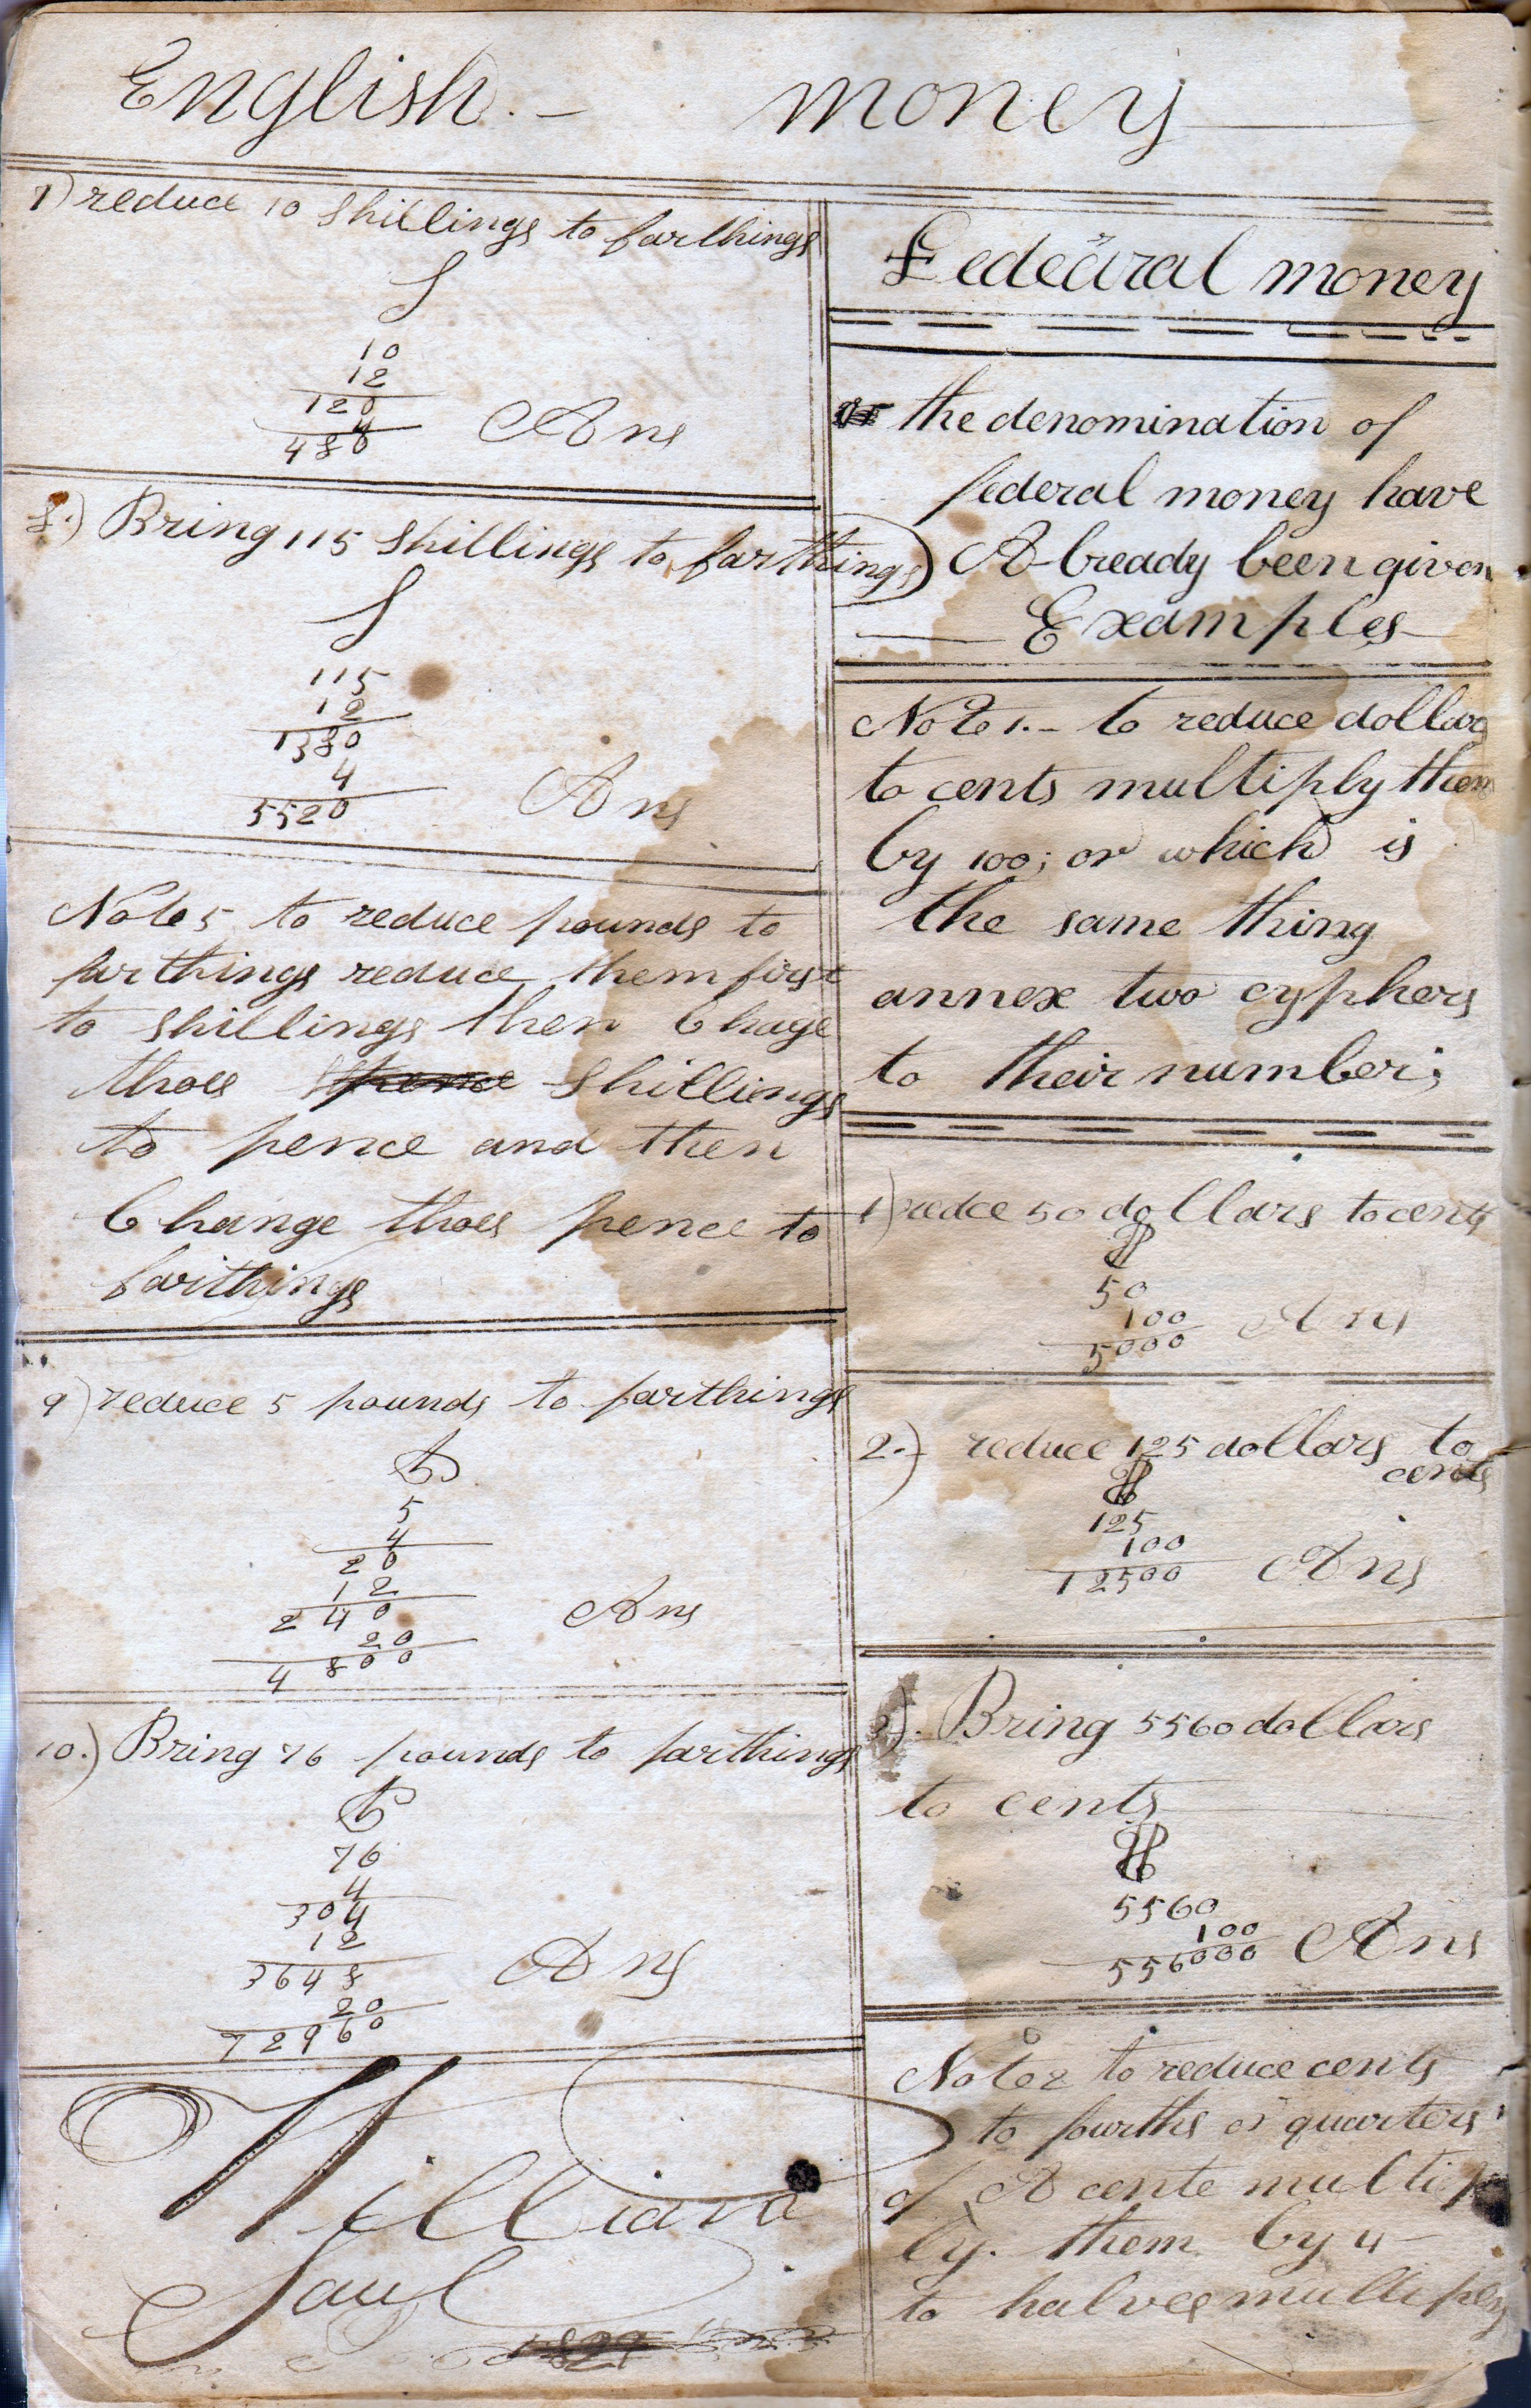 English. - money
7) reduce 10 shillings to farthings
S
10
12
120
4
480 Ans
8.) Bring 115 shillings to farthings)
S
115
12
1380
4
5520 Ans
Note 5 to reduce pounds to
farthings reduce them first
to shillings then Chage
thoes shillings
to pence and then
Change thoes pence to
farthings
9) reduce 5 pounds to farthings
5
4
20
12
240 Ans
20
4800
10.) Bring 76 pounds to farthings
76
4
304
12
3648 Ans
20
72960
William
Saul
1829
Fedearal money
the denomination of
federal money have
Allready been given
Examples
Note 1.- to reduce dollars
to cents multiply them
by 100; or which is
the same thing
annex two cyphers
to their number;
1) redce 50 dollars to cents
$
50
100 Ans
5000
2.) reduce 125 dollars to
cents
$
125
100
12500 Ans
3). Bring 5560 dollars
to cents
$
5560
100
556000 Ans
Note 2 to reduce cents
to fourths or quarters
of A cente multip
ly. them by 4
to halves multiply